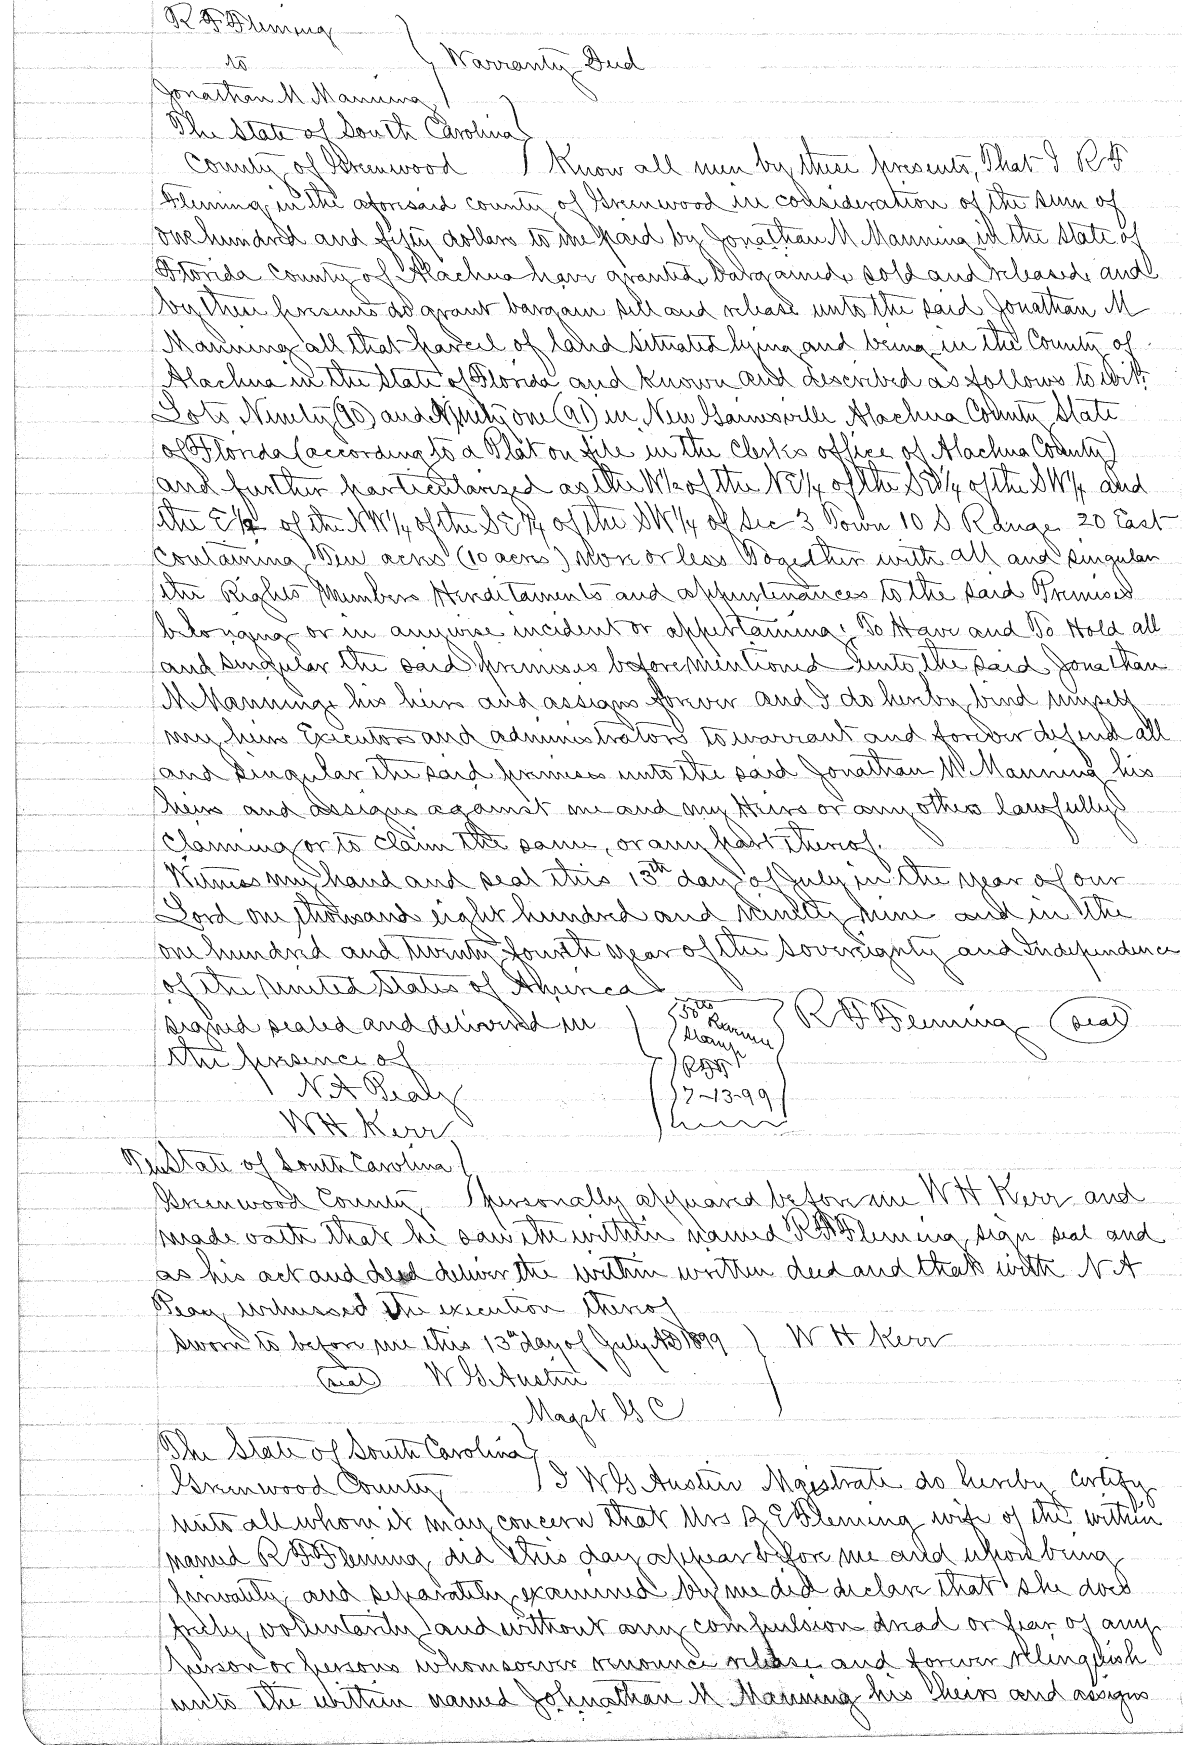 R F Fleming
to
Warranty Deed
Jonathan M Manning
The State of South Carolina
County of Greenwood Know all men by these presents, That I R F
Fleming in the aforesaid county of Greenwood in consideration of the sum of
one hundred and fifty dollars to me paid by Jonathan M Manning in the State of
Florida County of Alachua have granted, bargained, sold and released, and
by these presents do grant bargain sell and release unto the said Jonathan M
Manning all that parcel of land situated lying and being in the County of
Alachua in the State of Florida and known and described as follows to wit:
Lots Ninety (90) and Ninety one (91) in New Gainesville Alachua County State
of Florida (according to a Plat on file in the Clerks office of Alachua County)
and further particularized as the W½ of the NE¼ of the SE¼ of the SW¼ and
the E½ of the NW¼ of the SE¼ of the SW¼ of Sec 3 Town 10 S Range 20 East
Containing Ten acres (10 acres) more or less Together with all and singular
the Rights Members Hereditaments and appurtenances to the said Premises
belonging or in anywise incident or appertaining: To Have and To Hold all
and singular the said premises before mentioned unto the said Jonathan
M Manning, his heirs and assigns forever and I do hereby bind myself
my heirs Executors and administrators to warrant and forever defend all
and singular the said premises unto the said Jonathan M Manning his
heirs and assigns against me and my Heirs or any others lawfully
Claiming or to claim the same, or any part thereof.
Witness my hand and seal this 13th day of July in the year of our
Lord one thousand eight hundred and ninety nine and in the
one hundred and twenty fourth year of the sovereignty and Independence
of the United States of America
signed sealed and delivered in
the presence of
N A Peay
W H Kerr
50cts
Revenue
Stamp
RFF
7-13-99
R F Fleming (seal)
The State of South Carolina
Greenwood County personally appeared before me W H Kerr and
made oath that he saw the within named R F Fleming, sign seal and
as his act and deed deliver the within written deed and that with N A
Peay witnessed the execution thereof
Sworn to before me this 13th day of July AD 1899 W H Kerr
(seal) W G Austin
Magst G C
The State of South Carolina
Greenwood County I W G Austin Magistrate do hereby certify
unto all whom it may concern that Mrs E Fleming wife of the within
named R F Fleming did this day appear before me and upon being
privately and separately examined by me did declare that she does
freely voluntarily and without any compulsion dread or fear of any
person or persons whomsoever renounce release and forever relinquish
unto the within named Johnathan M Manning his heirs and assigns